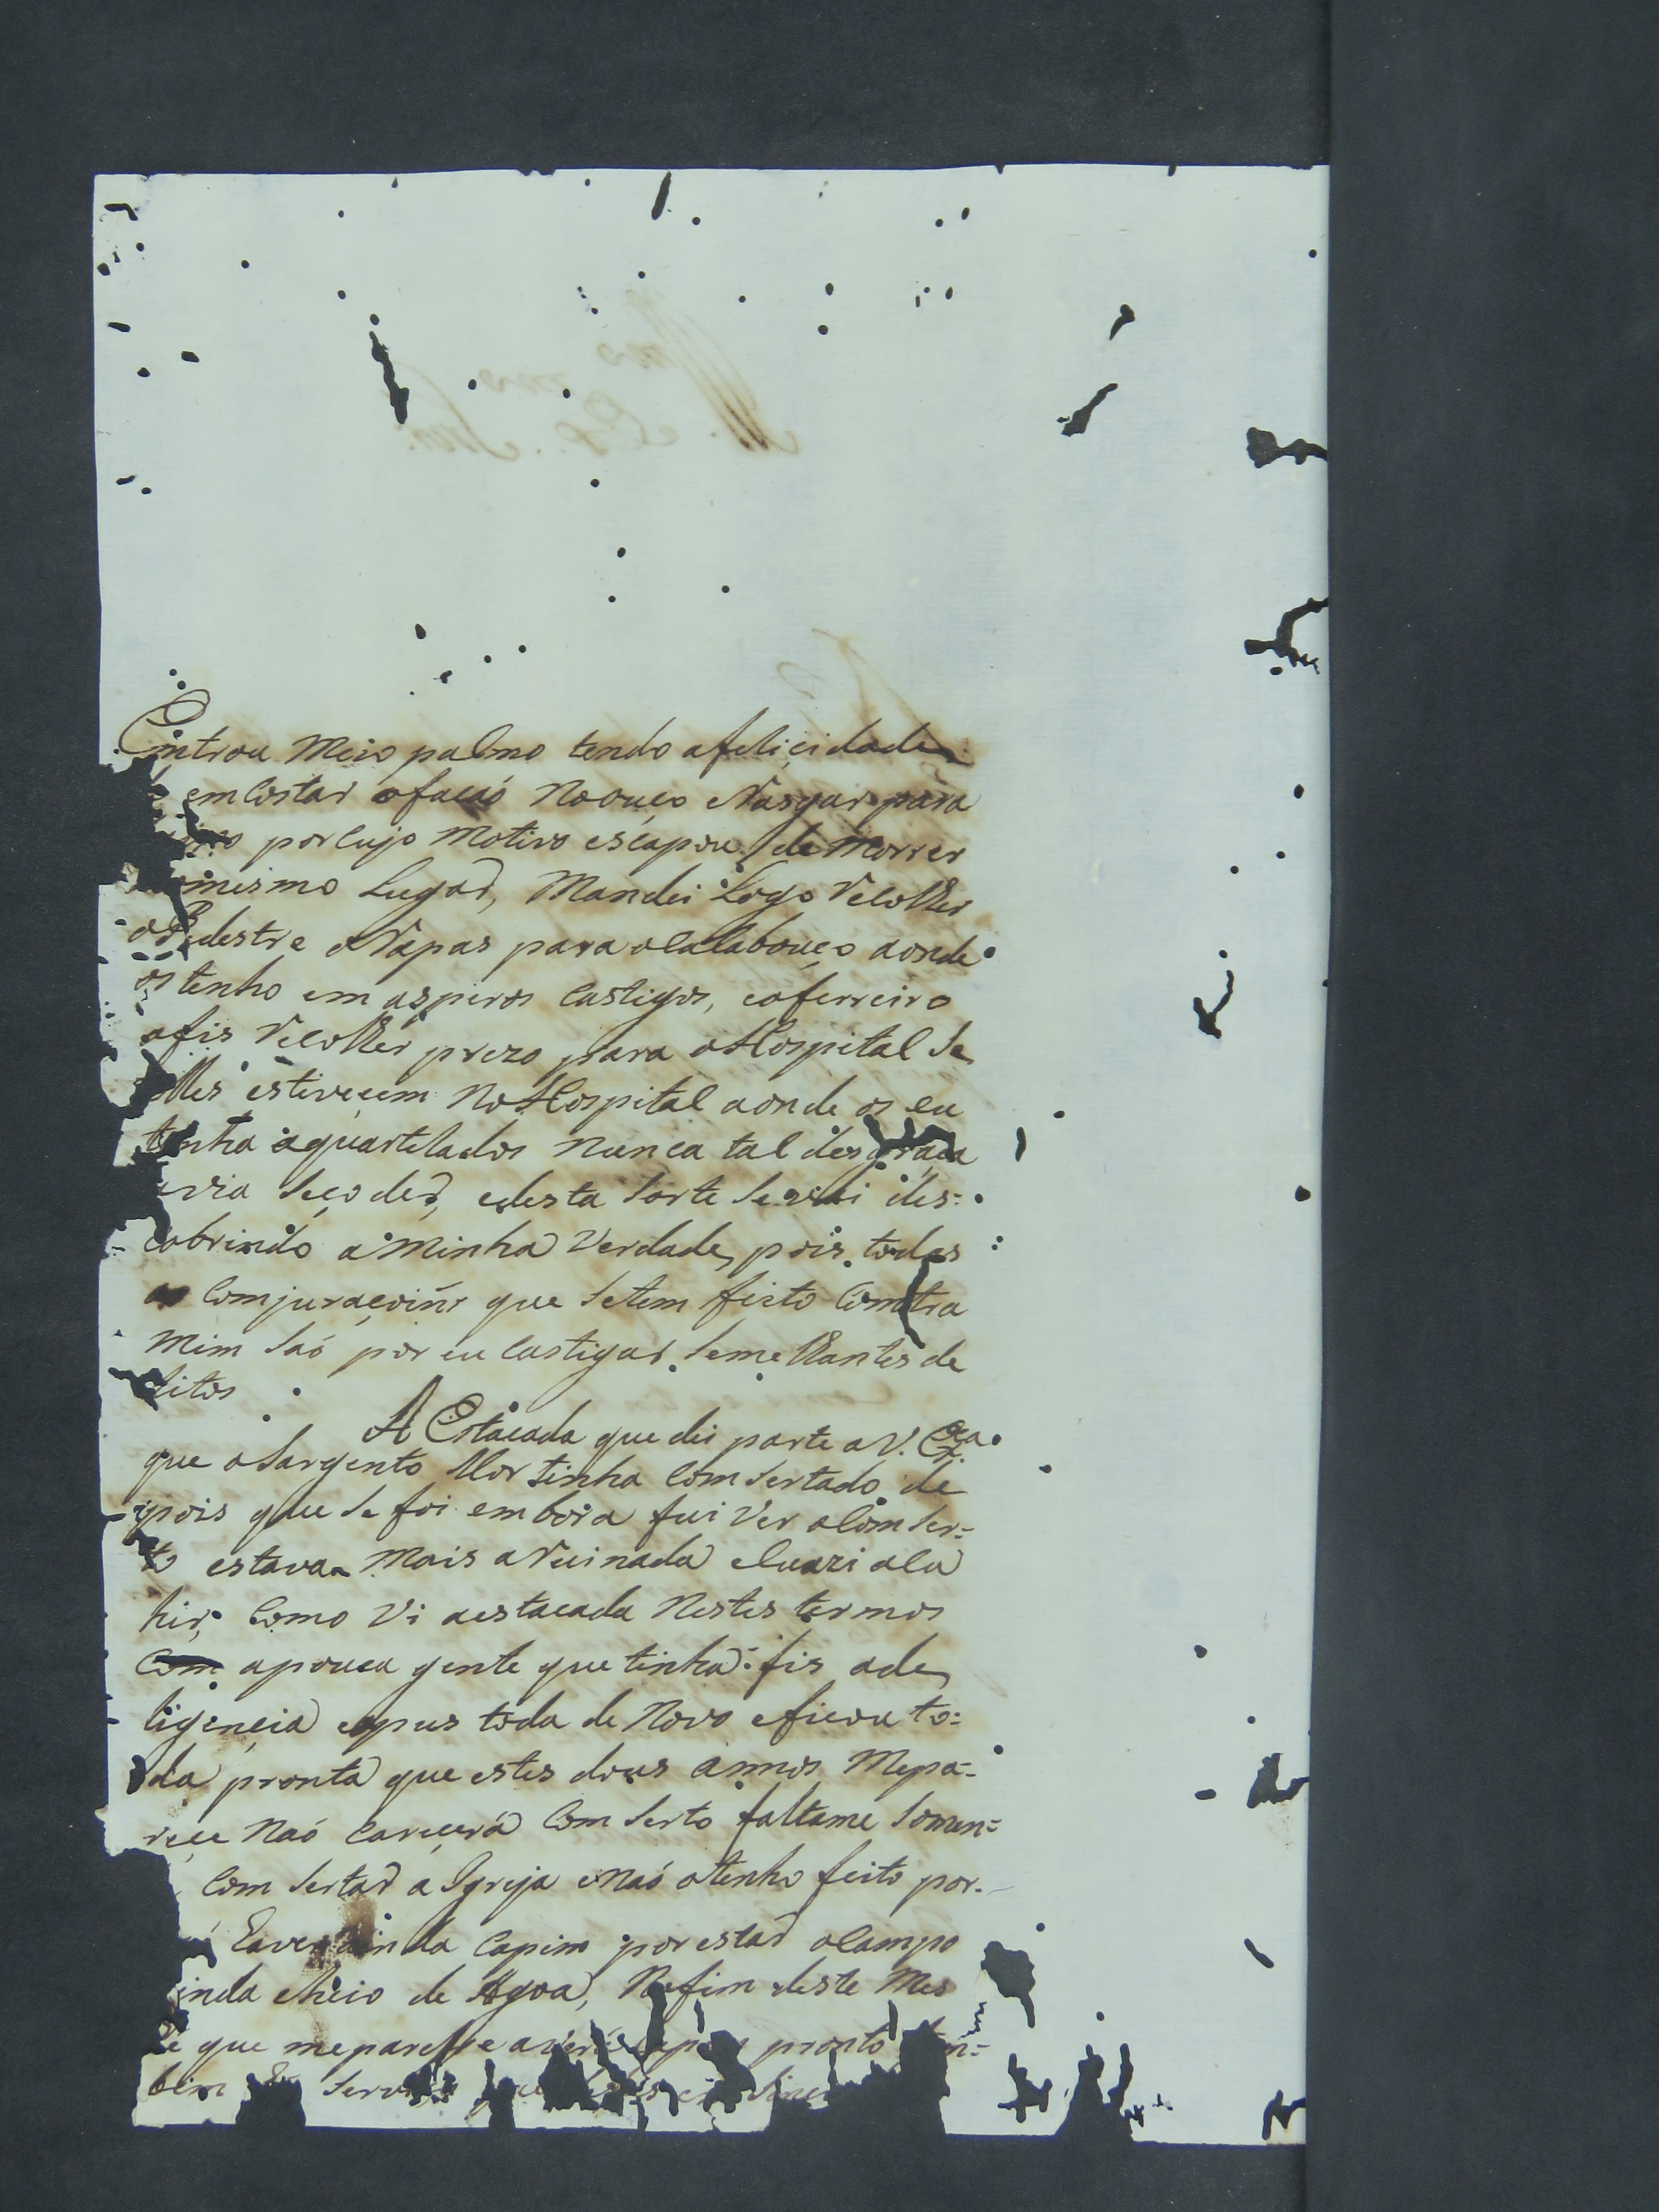 Entrou Meio palmo tendo afeliçidade
emCostar ofacaó NoOuço eRasgar para
por Cujo Motivo escapou de Morrer
mesmo Lugar, Mandei Logo Recolher
oPedestre eRapas para oCalabouço aonde
os tenho em asperos Castigos, eoferreiro
ofis Recolher prezo para oHospital Se
elles estiveçem NoHospital aonde os eu
tinha aquartelados Nunca tal desgraça
avia Seçoder, edesta Sorte Se vai des=
cobrindo a Minha Verdade, pois todas
as Comjuraçoiñs que Setem feito Comtra
Mim Saó por eu Castigar Semelhantes de
Litos
A Estacada que dei parte a V. Exca
que oSargento Mor tinha ComSertado de
pois que Se foi embora fui Ver oComSer=
to estava Mais aRuinada eCuazi aCa
hir, Como Vi aestacada Nestes termos
Com apouca gente que tinha fis ade
Ligençia epus toda de Novo eficou to=
da pronta que estes dous annos Mepa=
reçe Naó Careçerá ComSerto faltame Somen=
ComSertar a Igreja eNaó otenho feito por
aver ainda Capim por estar oCampo
inda cheio de Agoa, Nofim deste Mes
é que mepareçe averá Capim pronto
bem